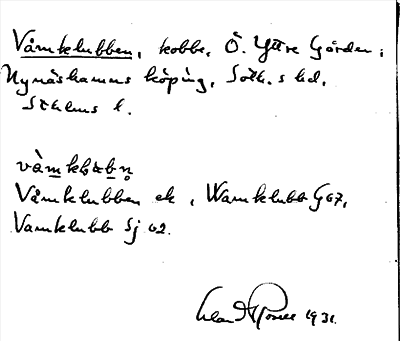 Våmklubben, kobbe, Ö. Yttre Gården i
Nynäshamns köping, Soth.s hd,
Sthlms l.
våmklɞbn̥
Våmklubben ek, Wamklubb G67,
Vamklubb Sj 02.
1931.